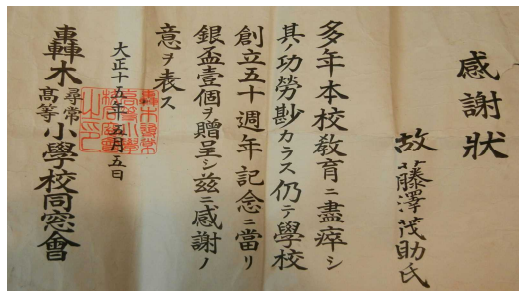 感謝狀
故藤澤茂助氏
多年本校敎育ニ盡瘁シ
其ノ功勞尠カラス仍テ學校
創立五十週年記念ニ當リ
銀盃壹個ヲ贈呈シ茲ニ感謝ノ
意ヲ表ス
大正十五年五月五日
轟木尋常高等小學校同窓會